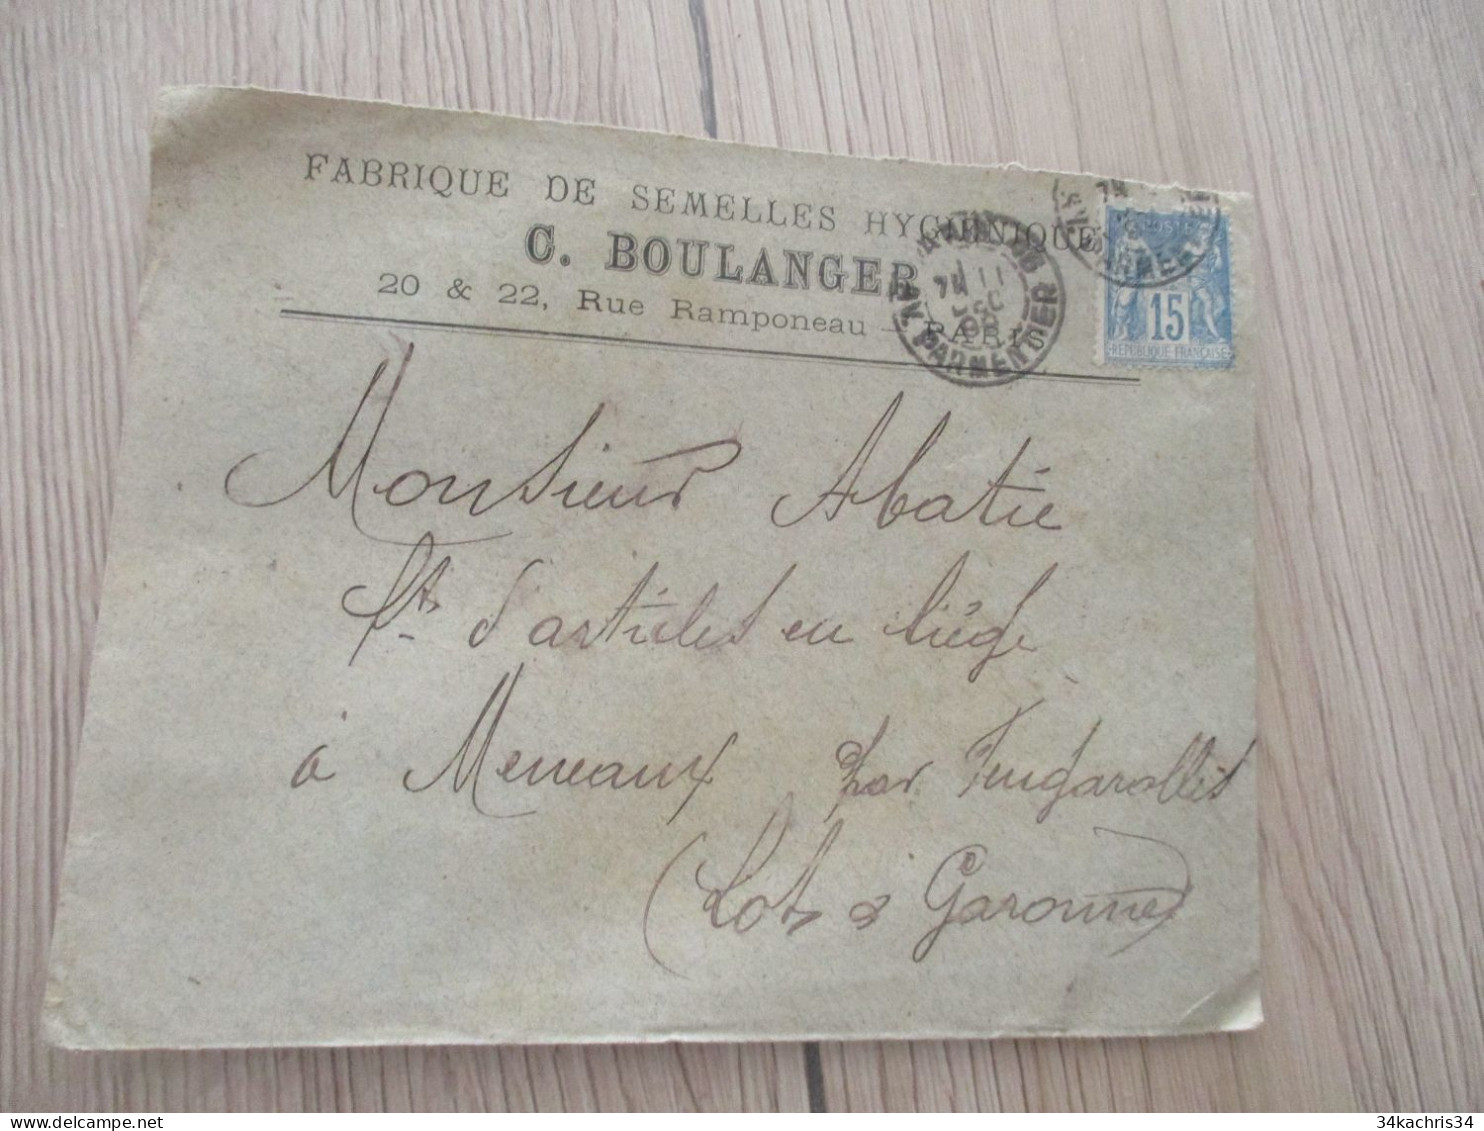 FABRIQUE DE SEMELLES HYGIÉNIQUES
C. BOULANGER
20 & 22, Rue Ramponeau — PARIS
AV. PARMENTIER
11
DEC
98
15
REPUBLIQUE FRANÇAISE
PARMENTIER
Monsieur Abatie
ft. d'articles en liège
à Meneaux par Feugarolles
(Lot & Garonne)
34kachris34